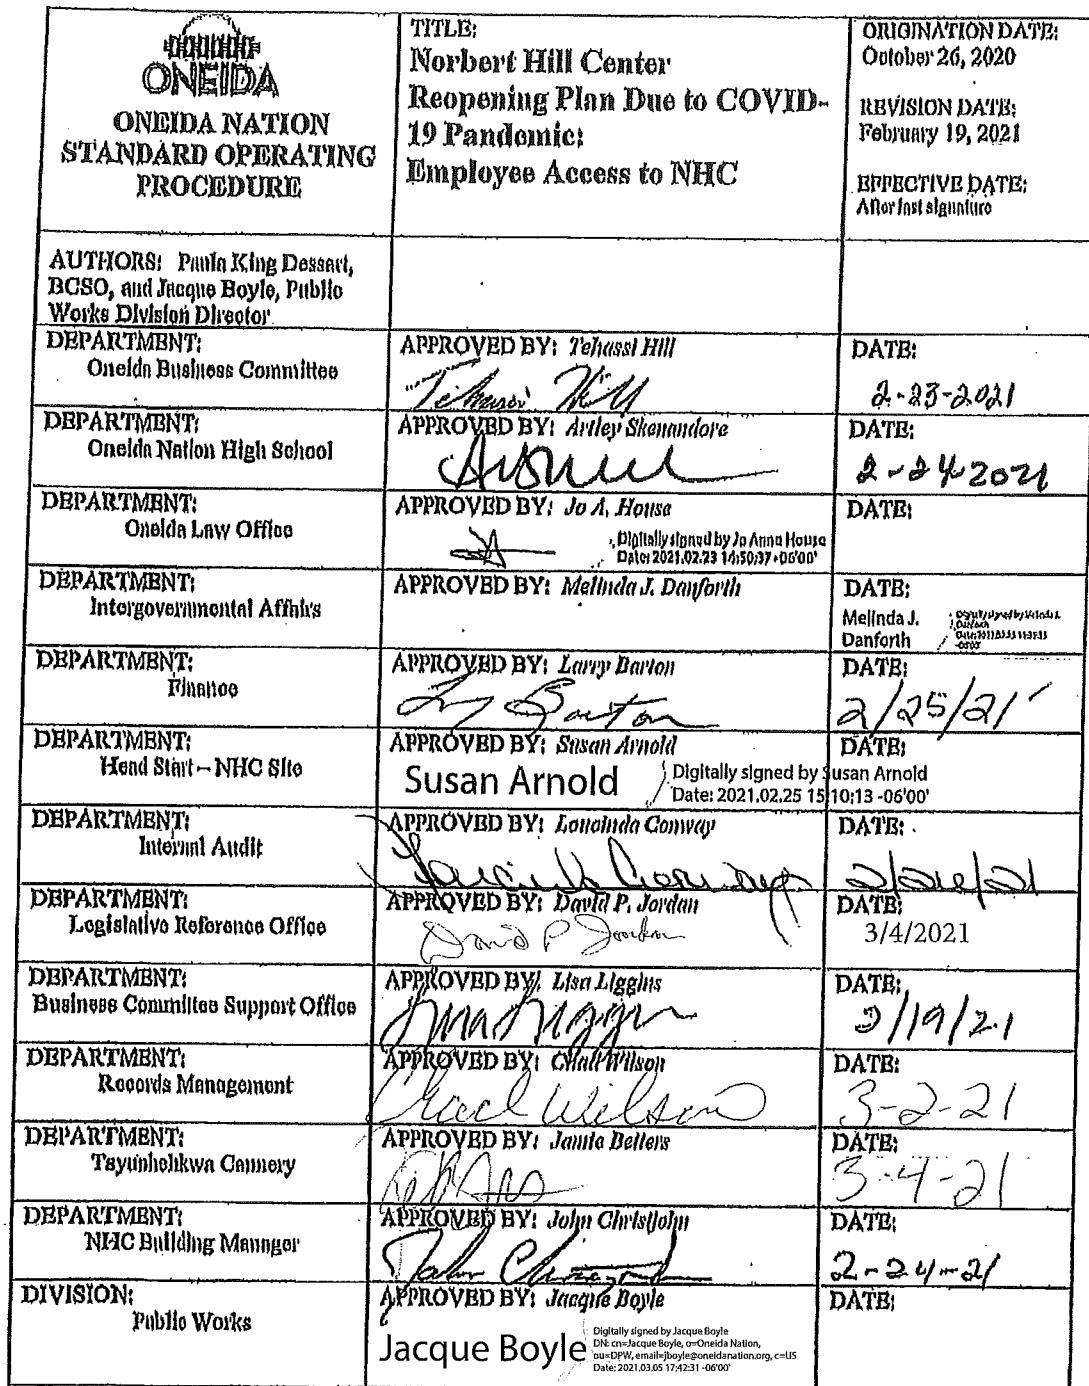 ONEIDA
ONEIDA NATION
STANDARD OPERATING
PROCEDURE
TITLE:
Norbert Hill Center
Reopening Plan Due to COVID-
19 Pandemic:
Employee Access to NHC
ORIGINATION DATE:
October 26, 2020
REVISION DATE:
February 19, 2021
EFFECTIVE DATE:
After last signature
AUTHORS: Paula King Dessart,
BCSO, and Jacque Boyle, Public
Works Division Director
DEPARTMENT:
Oneida Business Committee
APPROVED BY: Tehassi Hill
Tehassi Hill
DATE:
2-23-2021
DEPARTMENT:
Oneida Nation High School
APPROVED BY: Artley Skenandore
DATE:
2-24-2021
DEPARTMENT:
Oneida Law Office
APPROVED BY: Jo A. House
Digitally signed by Jo Anne House
Date: 2021.02.23 14:50:37 -06'00'
DATE:
DEPARTMENT:
Intergovernmental Affairs
APPROVED BY: Melinda J. Danforth
DATE:
Melinda J.
Danforth
DEPARTMENT:
Finance
APPROVED BY: Larry Barton
Larry Barton
DATE:
2/25/21
DEPARTMENT:
Head Start – NHC Site
APPROVED BY: Susan Arnold
Susan Arnold
Digitally signed by Susan Arnold
Date: 2021.02.25 15:10:13 -06'00'
DATE:
DEPARTMENT:
Internal Audit
APPROVED BY: Loucinda Conway
Loucinda Conway
DATE:
2/26/21
DEPARTMENT:
Legislative Reference Office
APPROVED BY: David P. Jordan
David P Jordan
DATE:
3/4/2021
DEPARTMENT:
Business Committee Support Office
APPROVED BY: Lisa Liggins
Lisa Liggins
DATE:
2/19/21
DEPARTMENT:
Records Management
APPROVED BY: Chad Wilson
Chad Wilson
DATE:
3-2-21
DEPARTMENT:
Tsyunhehkwa Cannery
APPROVED BY: Jamie Betters
DATE:
3-4-21
DEPARTMENT:
NHC Building Manager
APPROVED BY: John Christjohn
John Christjohn
DATE:
2-24-21
DIVISION:
Public Works
APPROVED BY: Jacque Boyle
Jacque Boyle
Digitally signed by Jacque Boyle
DN: cn=Jacque Boyle, o=Oneida Nation,
ou=DPW, email=jboyle@oneidanation.org, c=US
Date: 2021.03.05 17:42:31 -06'00'
DATE: